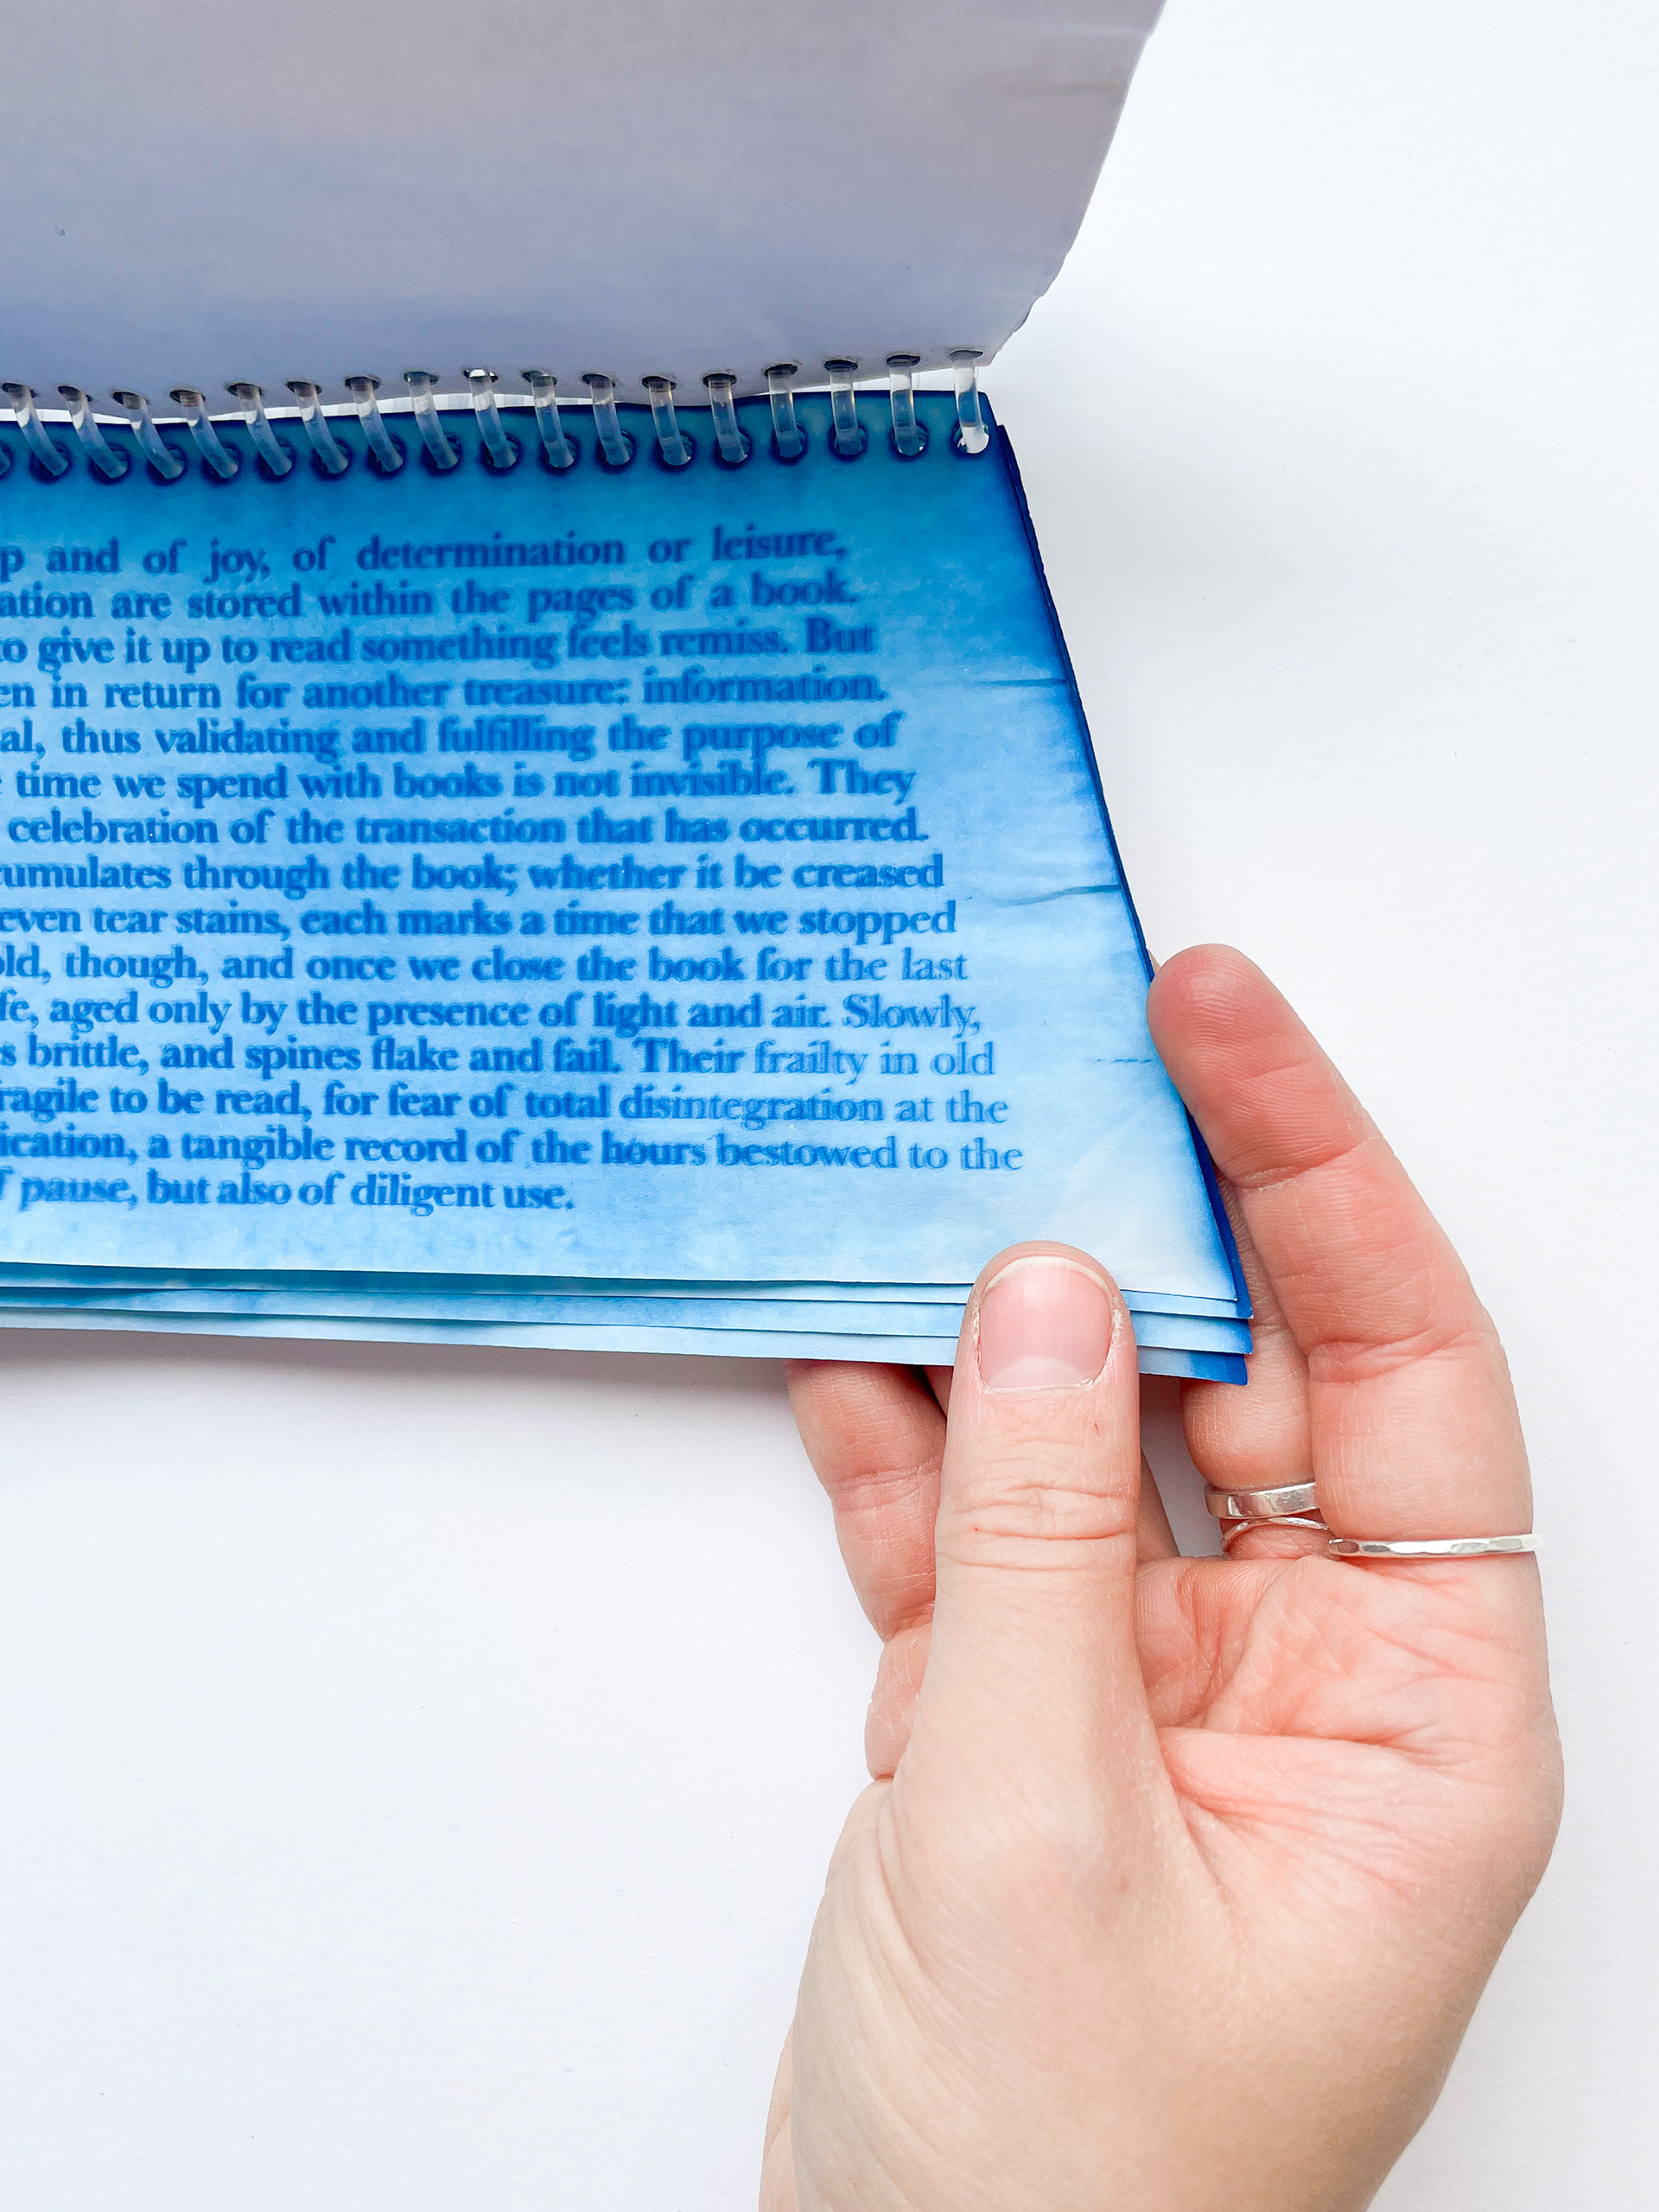 p and of joy, of determination or leisure,
ation are stored within the pages of a book.
to give it up to read something feels remiss. But
en in return for another treasure: information.
al, thus validating and fulfilling the purpose of
time we spend with books is not invisible. They
celebration of the transaction that has occurred.
cumulates through the book; whether it be creased
even tear stains, each marks a time that we stopped
old, though, and once we close the book for the last
fe, aged only by the presence of light and air. Slowly,
s brittle, and spines flake and fail. Their frailty in old
fragile to be read, for fear of total disintegration at the
ication, a tangible record of the hours bestowed to the
f pause, but also of diligent use.